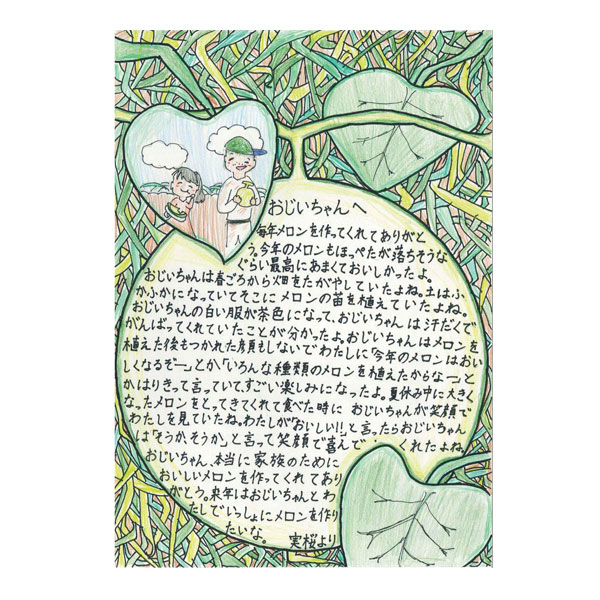 おじいちゃんへ
毎年メロンを作ってくれてありがと
う。今年のメロンもほっぺたが落ちそうな
ぐらい最高にあまくておいしかったよ。
おじいちゃんは春ごろから畑をたがやしていたよね。土はふ
かふかになっていてそこにメロンの苗を植えていたよね。
おじいちゃんの白い服が茶色になって、おじいちゃんは汗だくで
がんばってくれていたことが分かったよ。おじいちゃんはメロンを
植えた後もつかれた顔もしないでわたしに「今年のメロンはおい
しくなるぞー」とか「いろんな種類のメロンを植えたからなー」と
かはりきって言っていてすごい楽しみになったよ。夏休み中に大きく
なったメロンをとってきてくれて食べた時に おじいちゃんが笑顔で
わたしを見ていたね。わたしが「おいしい!!」と言ったらおじいちゃん
は「そうか、そうか」と言って笑顔で喜んで くれたよね。
おじいちゃん、本当に家族のために
おいしいメロンを作ってくれてあり
がとう。来年はおじいちゃんとわ
たしでいっしょにメロンを作り
たいな。 実桜より